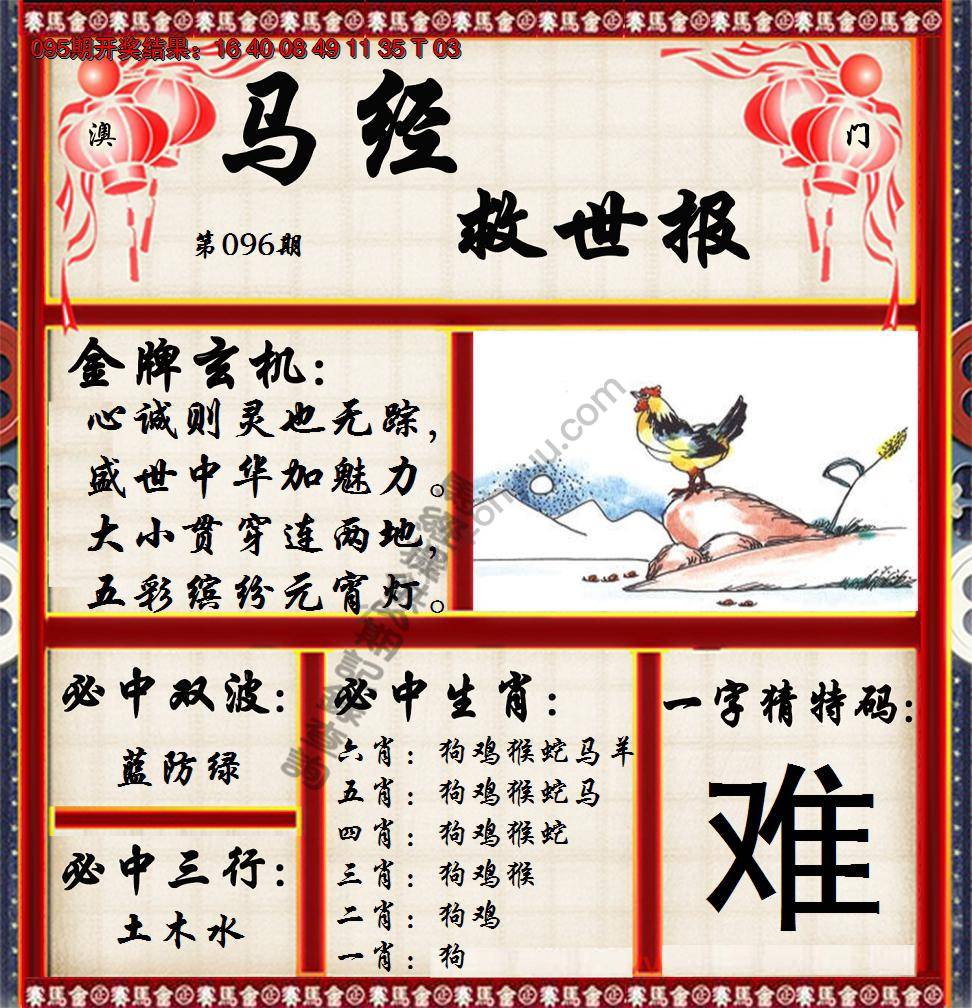 賽馬會
095期开奖结果：16 40 08 49 11 35 T 03
澳 门
马经
救世报
第096期
金牌玄机：
心诚则灵也无踪，
盛世中华加魅力。
大小贯穿连两地，
五彩缤纷元宵灯。
必中双波：
蓝防绿
必中三行：
土木水
必中生肖：
六肖：狗鸡猴蛇马羊
五肖：狗鸡猴蛇马
四肖：狗鸡猴蛇
三肖：狗鸡猴
二肖：狗鸡
一肖：狗
一字猜特码：
难